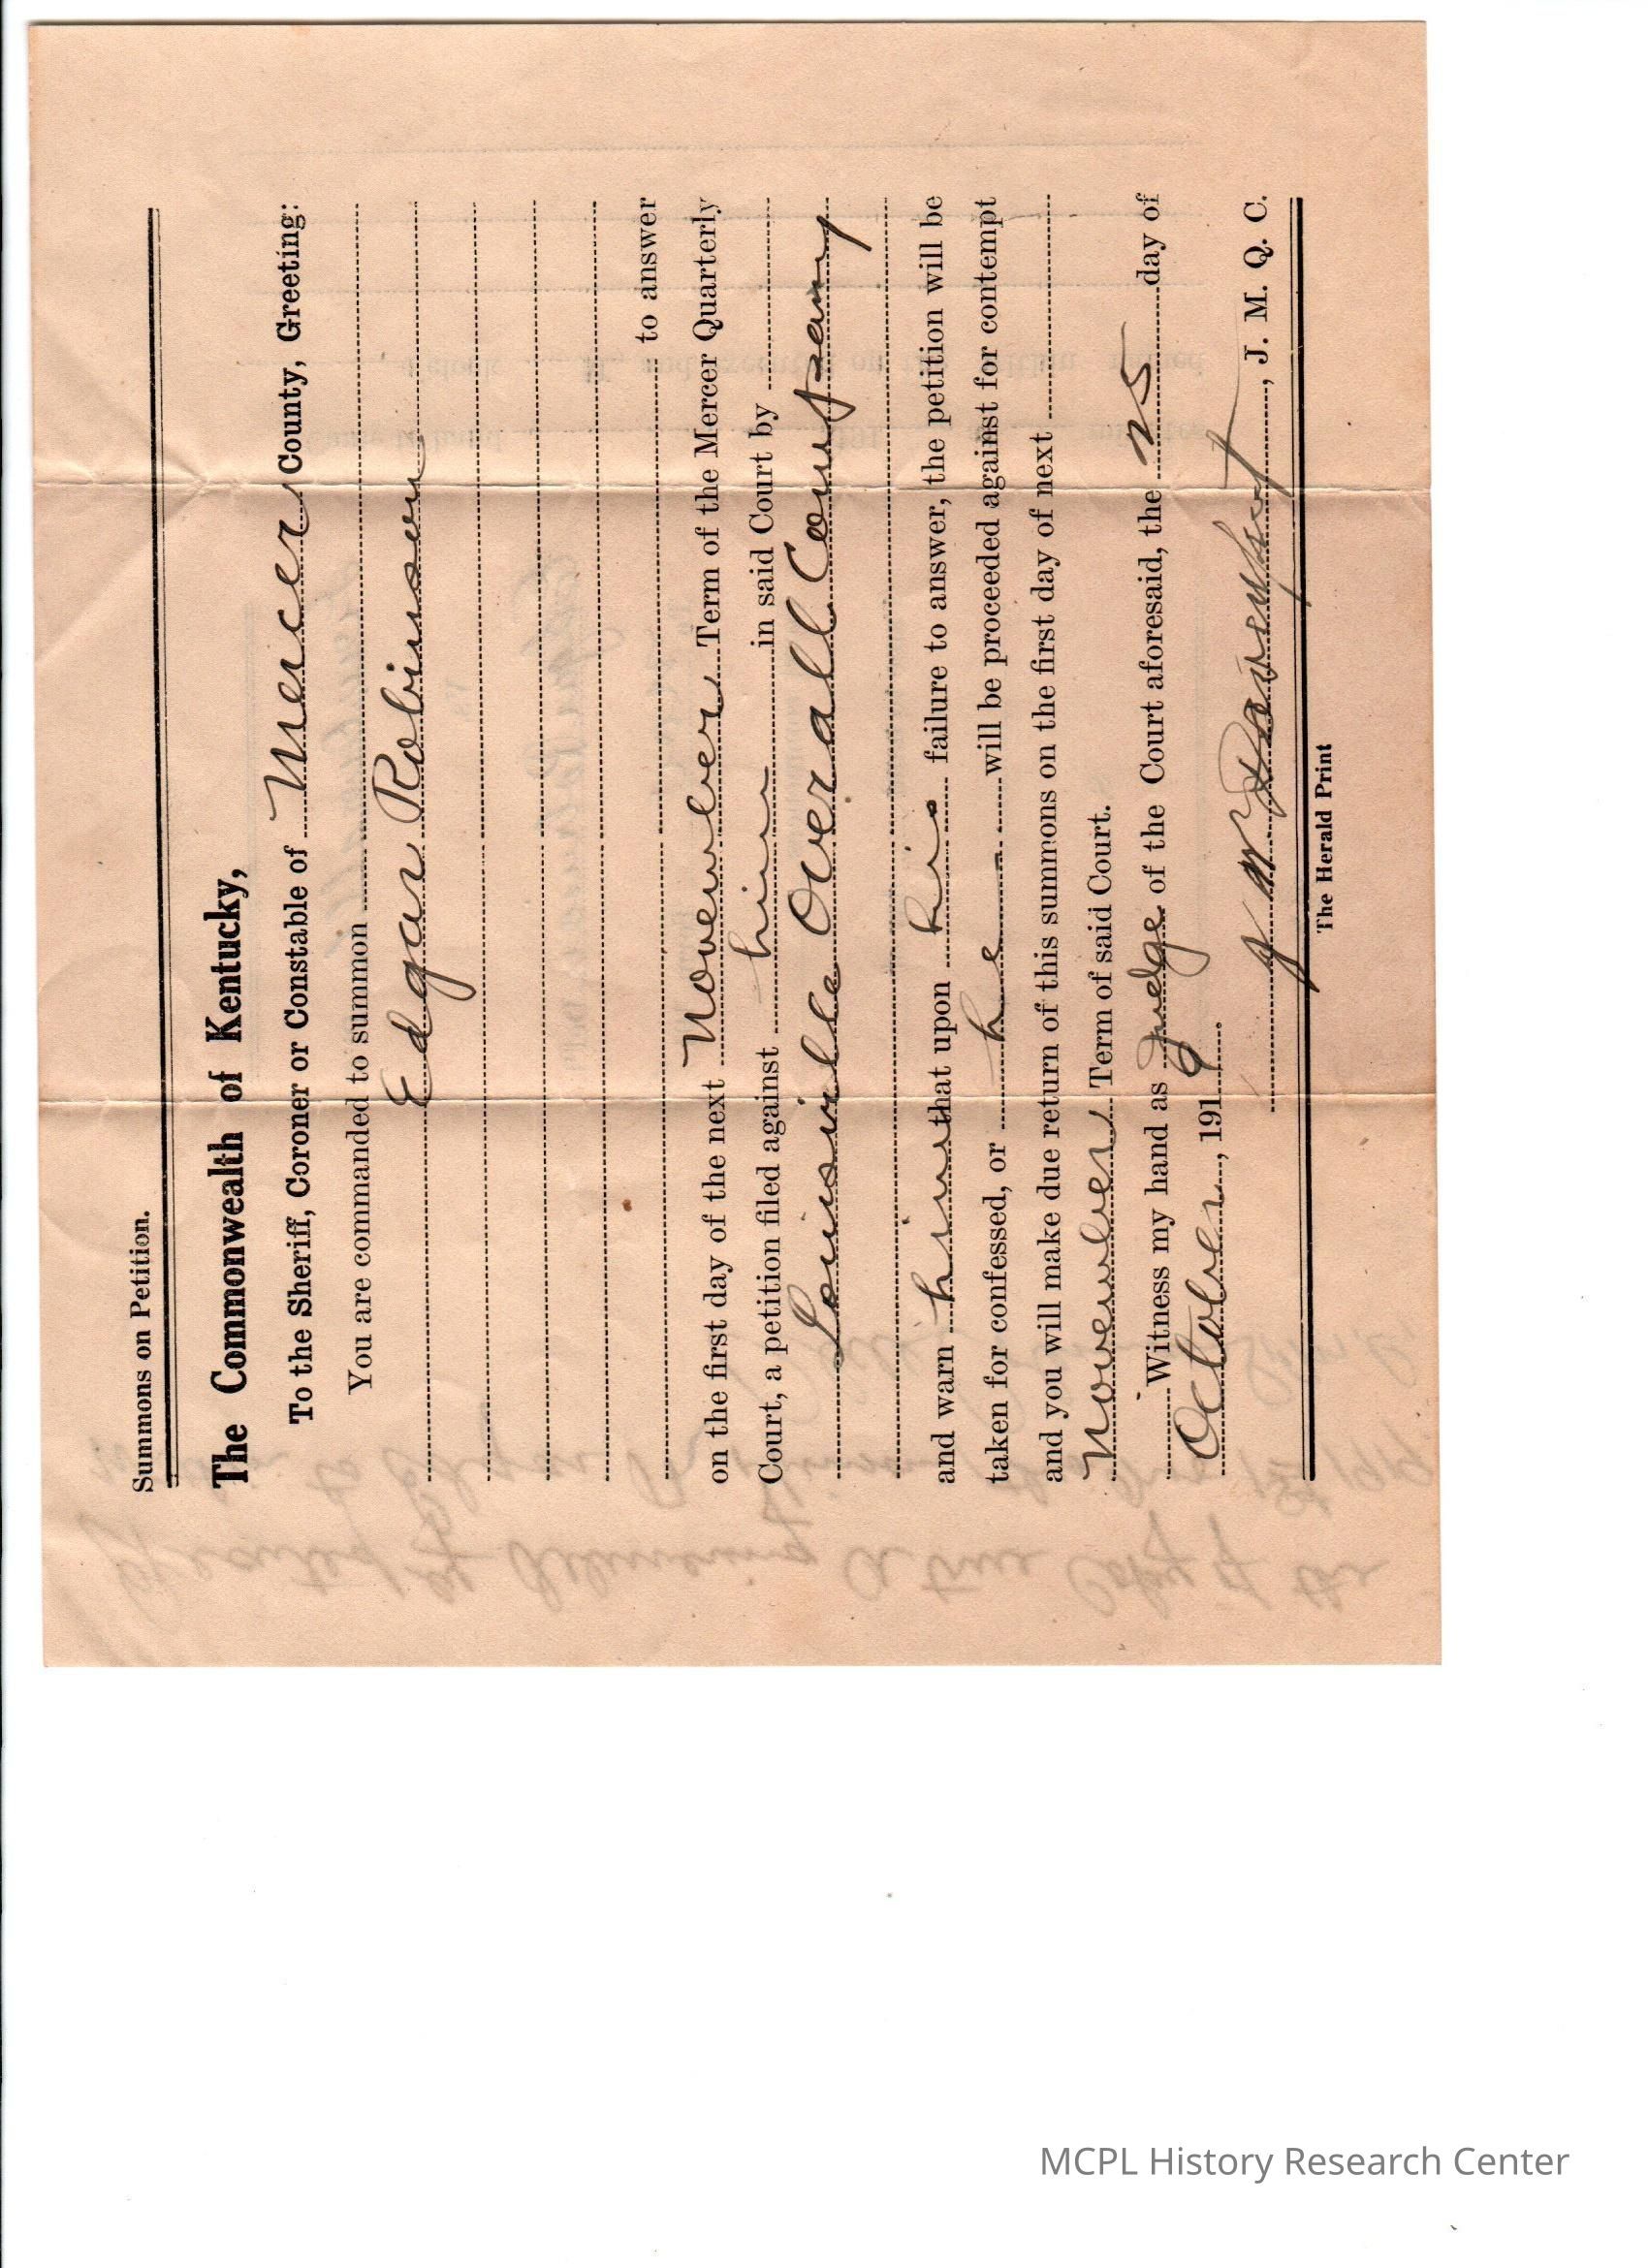 Summons on Petition.
The Commonwealth of Kentucky,
To the Sheriff, Coroner or Constable of Mercer County, Greeting:
You are commanded to summon
Edgar Robinson
to answer
on the first day of the next November Term of the Mercer Quarterly
Court, a petition filed against him in said Court by
Louisville Overall Company
and warn him that upon his failure to answer, the petition will be
taken for confessed, or he will be proceeded against for contempt
and you will make due return of this summons on the first day of next
November Term of said Court.
Witness my hand as Judge of the Court aforesaid, the 25 day of
October, 191
, J. M. Q. C.
The Herald Print
MCPL History Research Center